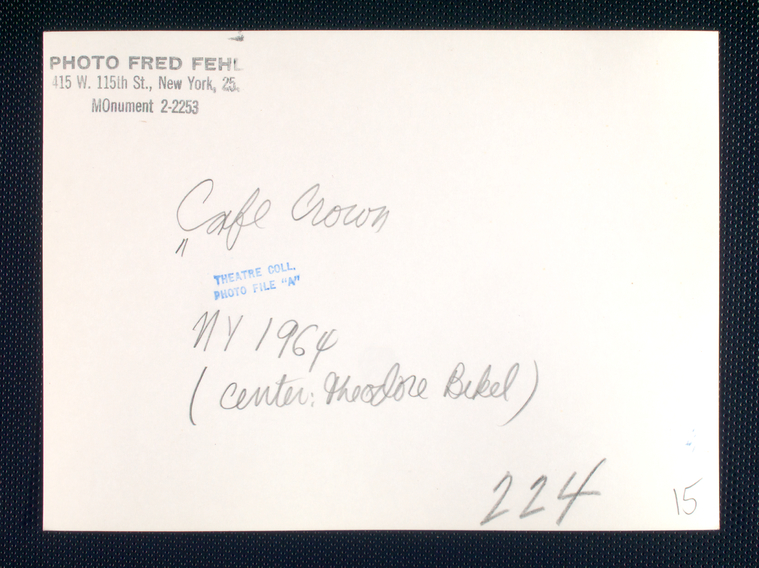 PHOTO FRED FEHL
415 W. 115th St., New York, 25.
MOnument 2-2253
Cafe Crown
"
THEATRE COLL.
PHOTO FILE "A"
NY 1964
(center: Theodore Bikel)
224
15